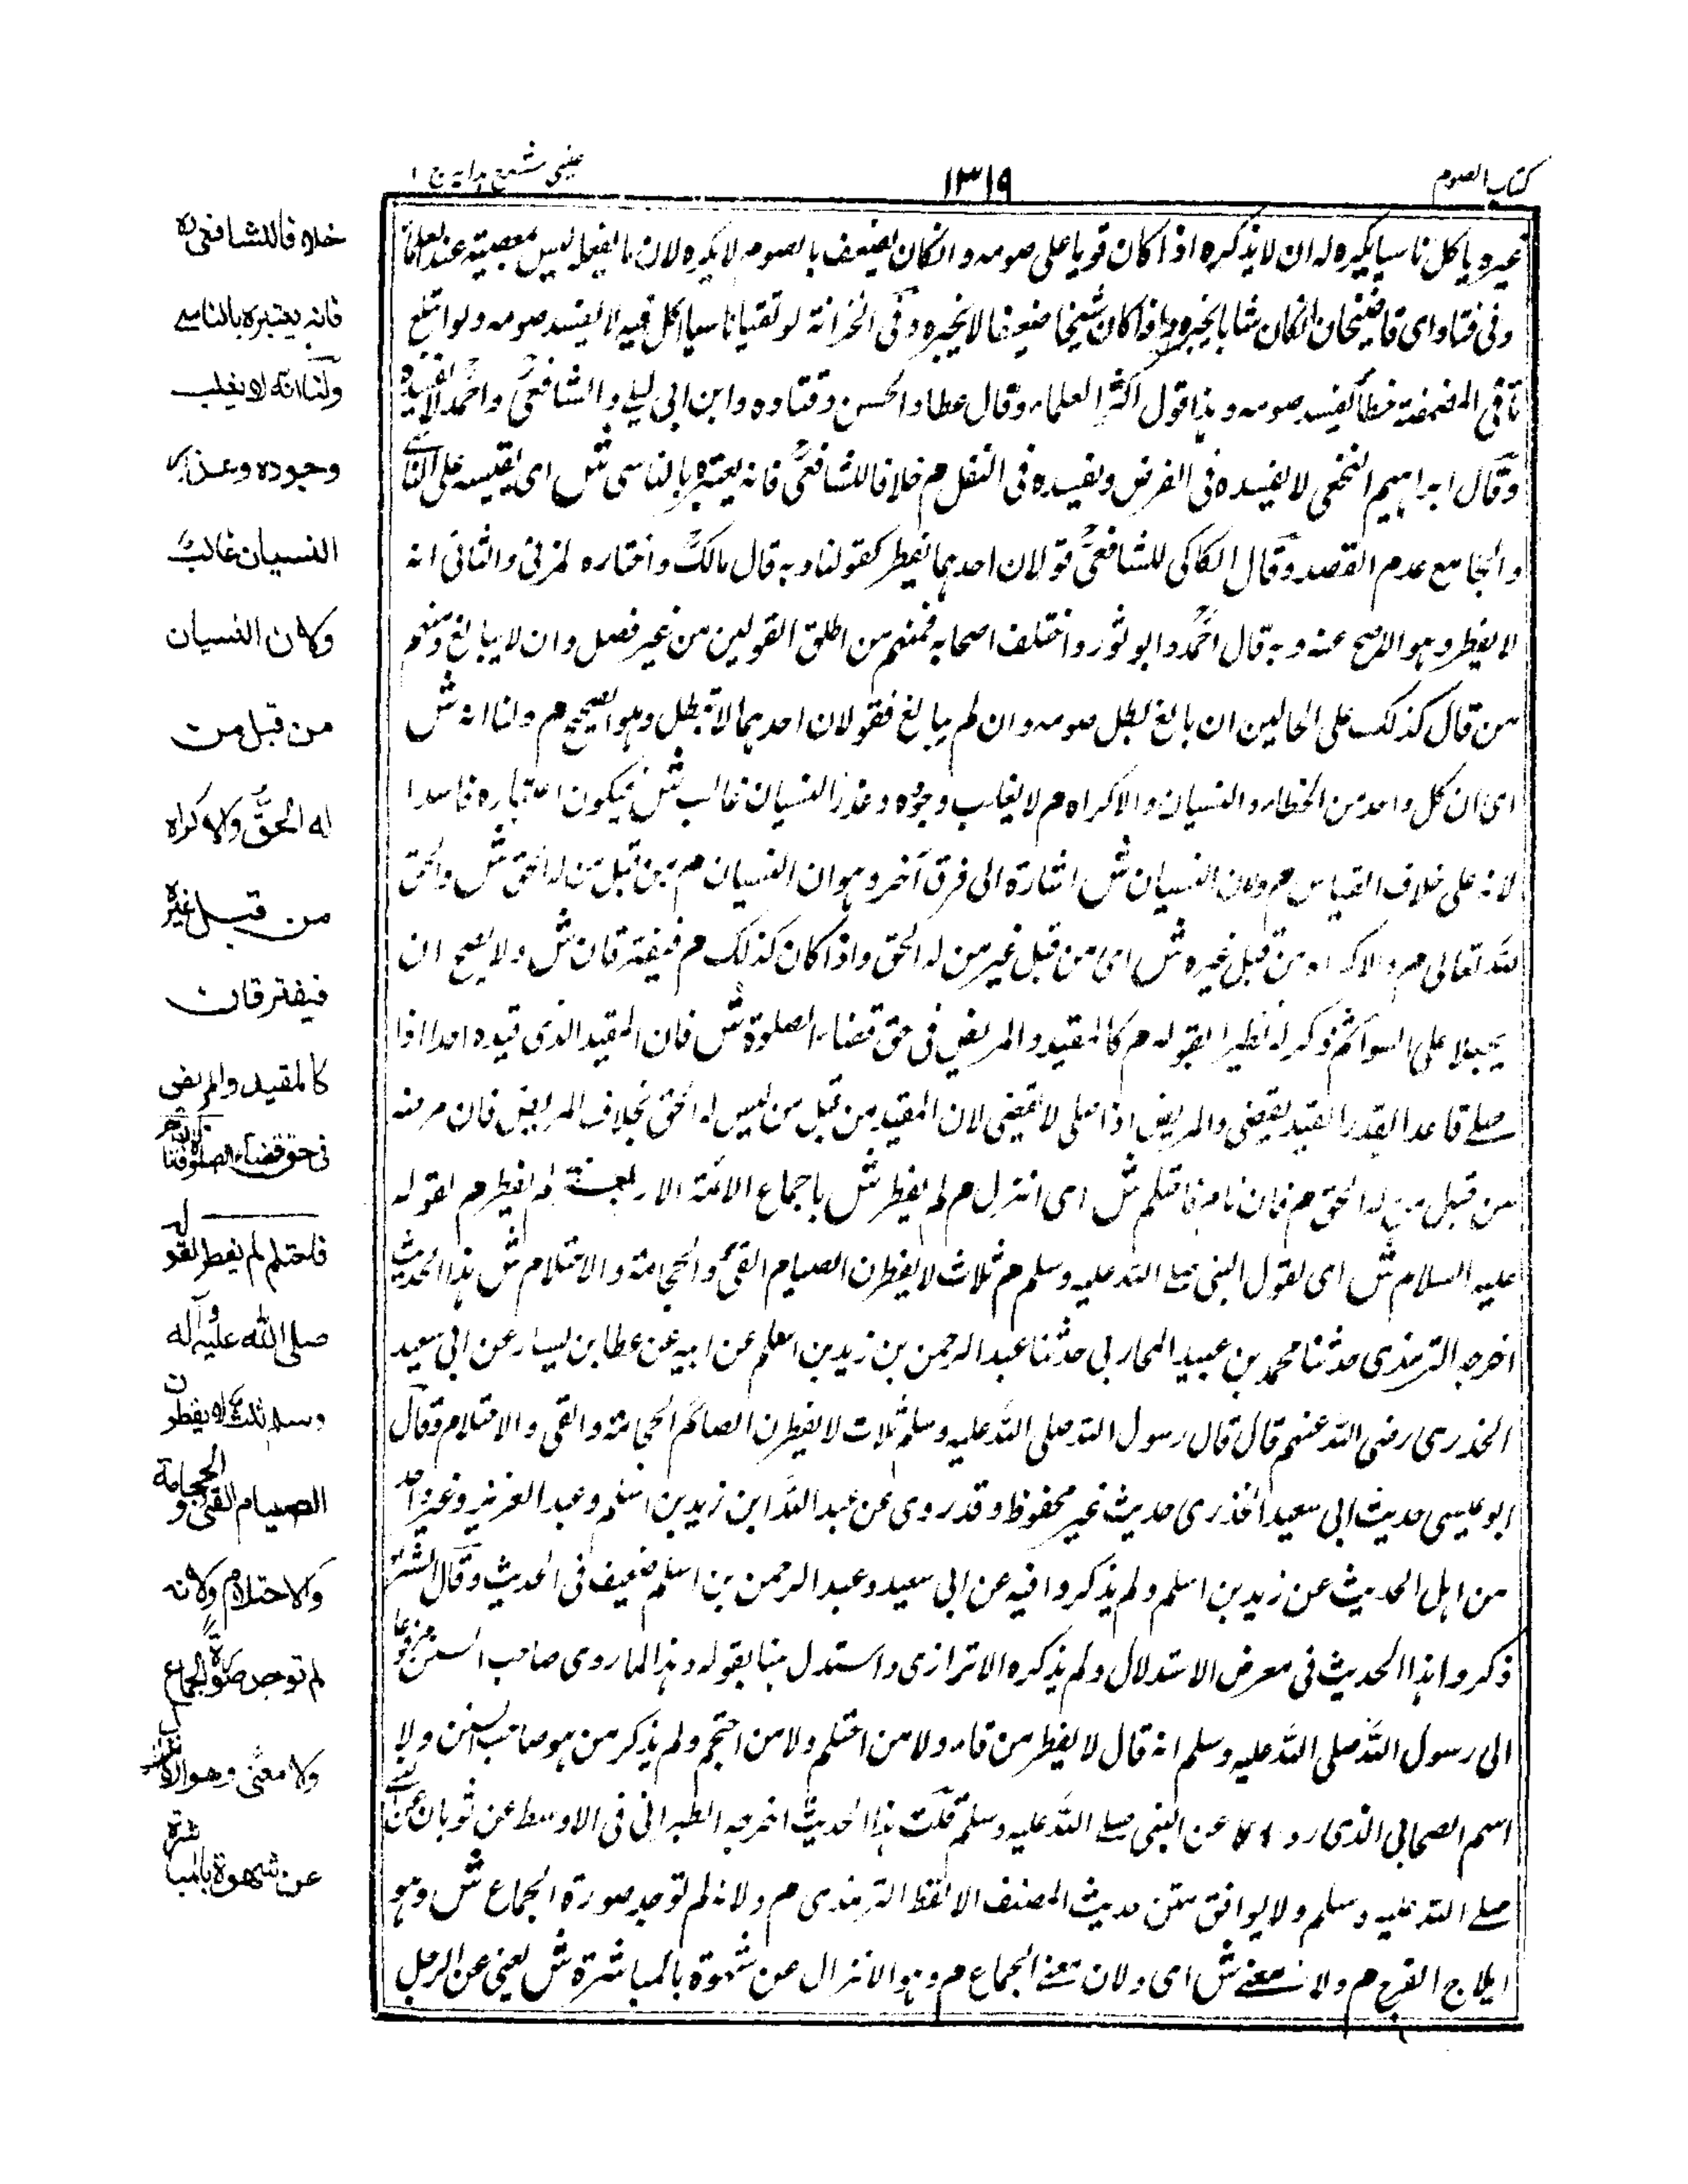 كتاب الصوم
١٣١٩
عينى شرح هدايه ج ١
غيره ياكل ناسيا يكره له ان لا يذكره اذا كان قويا على صومه وانكان يضعف بالصوم لا يكره لان ما يفعله ليس معصية عند العلماء
وفى فتاواى قاضيخان انكان شابا يخبره واذا كان شيخا ضعيفا لا يخبره وفى الخزانة لو تقيا ناسيا اكل فيه لا يفسد صومه ولو ابتلع
فى المضمضة خطأ يفسد صومه وهذا قول اكثر العلماء وقال عطا والحسن وقتاده وابن ابى ليلى والشافعى واحمد لا يفسده
وقال ابراهيم النخعى لا يفسده فى الفرض ويفسده فى النفل م خلافا للشافعى فانه يعتبره بالناسى ش اى يقيسه على الناسى
والجامع عدم القصد وقال الكاكى للشافعى قولان احدهما يفطر كقولنا وبه قال مالك واختاره المزنى والثانى انه
لا يفطر وهو الاصح عنه وبه قال احمد وابو ثور واختلف اصحابه فمنهم من اطلق القولين من غير فصل وان لا يبالغ ومنهم
من قال كذلك على الحالين ان بالغ بطل صومه وان لم يبالغ فقولان احدهما لا تبطل وهو الصحيح م ولنا انه ش
اى ان كل واحد من الخطاء والنسيان والاكراه م لا يغلب وجوده وعذر النسيان غالب ش فيكون اعتباره فاسدا
لانه على خلاف القياس م ولان النسيان ش اشارة الى فرق آخر وهو ان النسيان م من قبل من له الحق ش والحق
لله تعالى م والاكراه من قبل غيره ش اى من قبل غير من له الحق واذا كان كذلك م فيفترقان ش ولا يصح ان
يجعلا على السواء ثم ذكر له نظيرا بقوله م كالمقيد والمريض فى حق قضاء الصلوة ش فان المقيد الذى قيده احد اذا
صلى قاعدا القيد يقضى والمريض اذا صلى لا يقضى لان المقيد من قبل من ليس له الحق بخلاف المريض فان مرضه
من قبل من له الحق م فان نام فاحتلم ش اى انزل م لم يفطر ش باجماع الائمة الاربعة لم يفطر م لقوله
عليه السلام ش اى لقول النبى صلى الله عليه وسلم م ثلاث لا يفطرن الصيام القئ والحجامة والاحتلام ش هذا الحديث
اخرجه الترمذى حدثنا محمد بن عبيد المحاربى حدثنا عبد الرحمن بن زيد بن اسلم عن ابيه عن عطا بن يسار عن ابى سعيد
الخذرى رضى الله عنهم قال قال رسول الله صلى الله عليه وسلم ثلاث لا يفطرن الصائم الحجامة والقى والاحتلام وقال
ابو عيسى حديث ابى سعيد الخذرى حديث غير محفوظ وقد روى عن عبد الله ابن زيد بن اسلم وعبد العزيز وغير واحد
من اهل الحديث عن زيد بن اسلم ولم يذكروا فيه عن ابى سعيد وعبد الرحمن بن اسلم ضعيف فى الحديث وقال
ذكروا هذا الحديث فى معرض الاستدلال ولم يذكره الاترازى واستدل هنا بقوله وهذا لما روى صاحب السنن مرفوعا
الى رسول الله صلى الله عليه وسلم انه قال لا يفطر من قاء ولا من احتلم ولا من احتجم ولم يذكر من هو صاحب السنن ولا
اسم الصحابى الذى رواه عن النبى صلى الله عليه وسلم قلت هذا الحديث اخرجه الطبرانى فى الاوسط عن ثوبان عن النبى
صلى الله عليه وسلم ولا يوافق متن حديث المصنف الا لفظ الترمذى م ولانه لم توجد صورة الجماع ش وهو
ايلاج الفرج م ولا معنى ش اى ولان معنى الجماع م وهو الانزال عن شهوة بالمباشرة ش يعنى عن الرجل
خلافا للشافعى ره
فانه يعتبره بالناسى
ولنا انه لا يغلب
وجوده وعذر
النسيان غالب
ولان النسيان
من قبل من
له الحق والاكراه
من قبل غيره
فيفترقان
كالمقيد والمريض
فى حق قضاء الصلوة فان نام
فاحتلم لم يفطر لقوله
صلى الله عليه وآله
وسلم ثلث لا يفطرن
الصيام القئ والحجامة
والاحتلام ولانه
لم توجد صورة الجماع
ولا معنى وهو الانزال
عن شهوة بالمباشرة